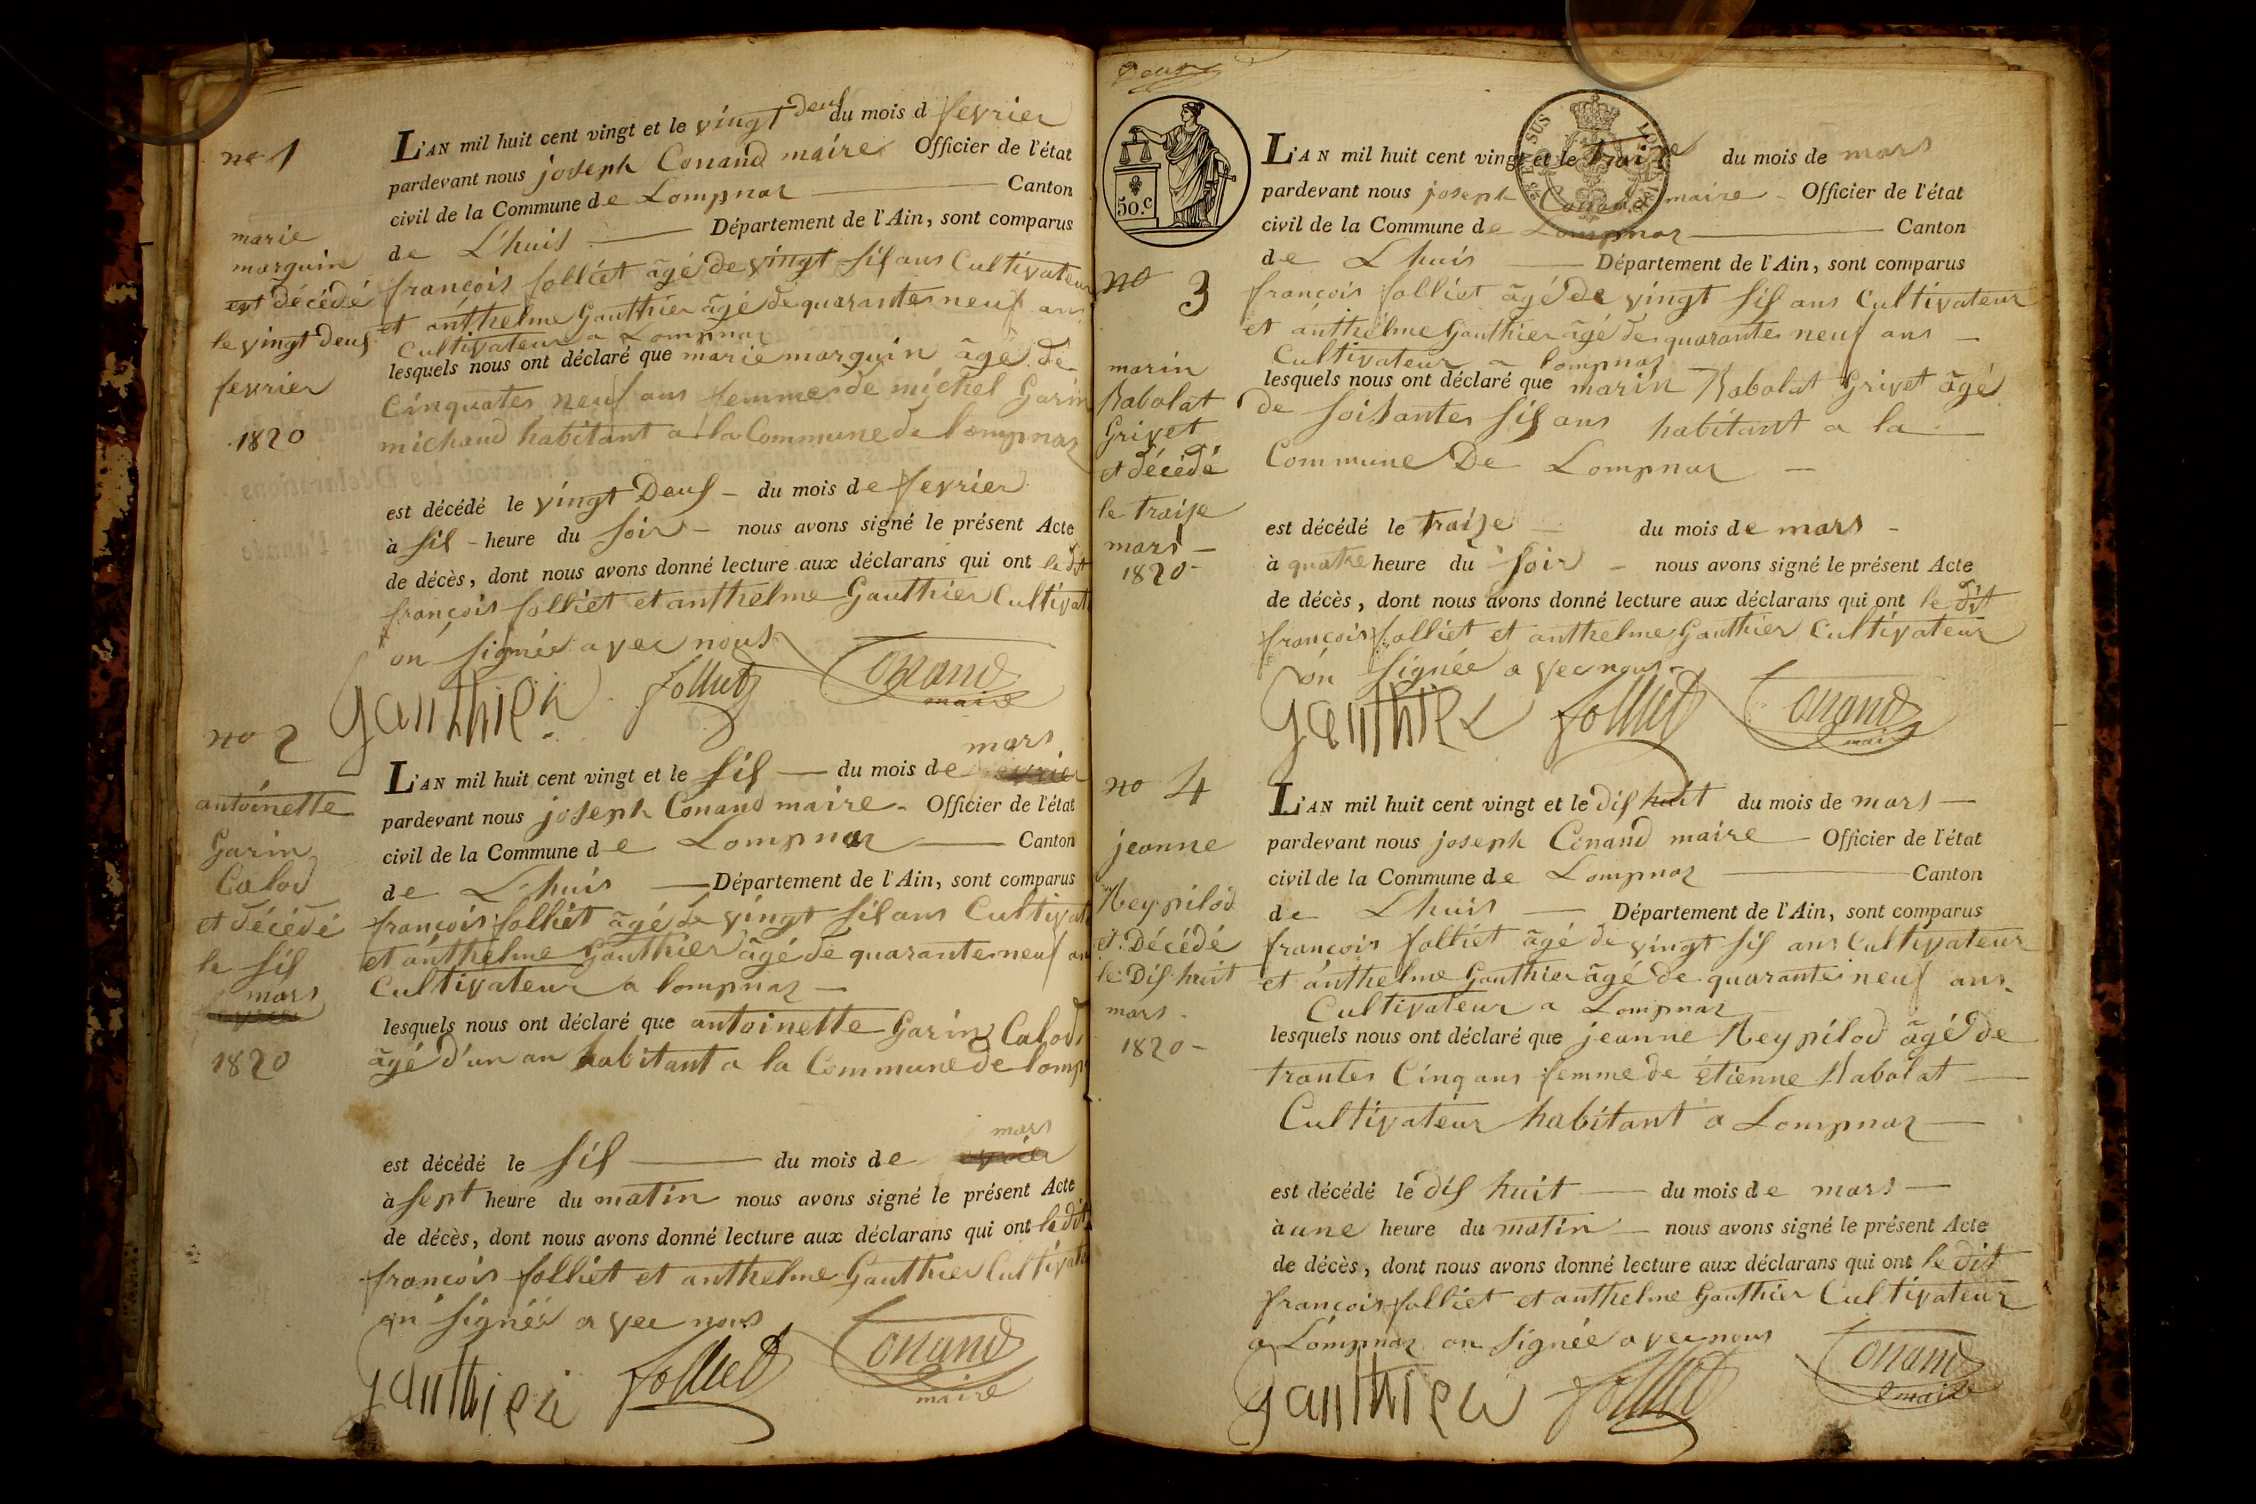 no 1
marie
marguin
est décédé
le vingt deuf
fevrier
1820
L'AN mil huit cent vingt et le vingt deuf du mois d fevrier
pardevant nous joseph Conand maire Officier de l'état
civil de la Commune de Lompnaz Canton
de L'huis Département de l'Ain, sont comparus
françois folliet âgé de vingt sif ans Cultivateur
et anthelme Gauthier âgé de quarante neuf ans
Cultivateur a Lompnaz
lesquels nous ont déclaré que marie marguin âgé de
Cinquates neuf ans femme de michel Garin
michaud habitant a la Commune de lompnaz
est décédé le vingt Deuf du mois de fevrier
à sif heure du soir nous avons signé le présent Acte
de décès, dont nous avons donné lecture aux déclarans qui ont le dit
françois folliet et anthelme Gauthier Cultivat
on signée avec nous
Gauthier folliet Conand
maire
no 2
antoinette
Garin
Calod
et décédé
le sif
mars
1820
mars
L'AN mil huit cent vingt et le sif du mois de fevrier
pardevant nous joseph Conand maire Officier de l'état
civil de la Commune de Lompnaz Canton
de L'huis Département de l'Ain, sont comparus
françois folliet âgé de vingt sif ans Cultivat
et anthelme Gauthier âgé de quarante neuf an
Cultivateur a lompnaz
lesquels nous ont déclaré que antoinette Garin Calod
âgé d'un an habitant a la Commune de lomp
mars
est décédé le sif du mois de
à sept heure du matin nous avons signé le présent Acte
de décès, dont nous avons donné lecture aux déclarans qui ont le dit
françois folliet et anthelme Gauthier Cultivate
on signée avec nous
Gauthier folliet Conand
maire
50.c
no 3
marin
Rabolat
Grivet
et décédé
le traise
mars
1820
L'AN mil huit cent vingt et le traise du mois de mars
pardevant nous joseph Conand maire Officier de l'état
civil de la Commune de Lompnaz Canton
de Lhuis Département de l'Ain, sont comparus
françois folliet âgé de vingt sif ans Cultivateur
et anthelme Gauthier âgé de quarante neuf ans
Cultivateur a lompnaz
lesquels nous ont déclaré que marin Rabolat Grivet âgé
de soisantes sif ans habitant a la
Commune De Lompnaz
est décédé le traise du mois de mars
à quatre heure du soir nous avons signé le présent Acte
de décès, dont nous avons donné lecture aux déclarans qui ont le dit
françois folliet et anthelme Gauthier Cultivateur
on signée avec nous
Gauthier folliet Conand
maire
no 4
jeanne
Reypilod
et Décédé
le Dif huit
mars
1820
L'AN mil huit cent vingt et le dif huit du mois de mars
pardevant nous joseph Conand maire Officier de l'état
civil de la Commune de Lompnaz Canton
de Lhuis Département de l'Ain, sont comparus
françois folliet âgé de vingt sif ans Cultivateur
et anthelme Gauthier âgé de quarante neuf ans
Cultivateur a Lompnaz
lesquels nous ont déclaré que jeanne Reypilod âgé de
trantes Cinq ans femme de étienne Rabolat
Cultivateur habitant a Lompnaz
est décédé le dif huit du mois de mars
à une heure du matin nous avons signé le présent Acte
de décès, dont nous avons donné lecture aux déclarans qui ont le dit
françois folliet et anthelme Gauthier Cultivateur
a Lompnaz on signée avec nous
Gauthier folliet Conand
maire